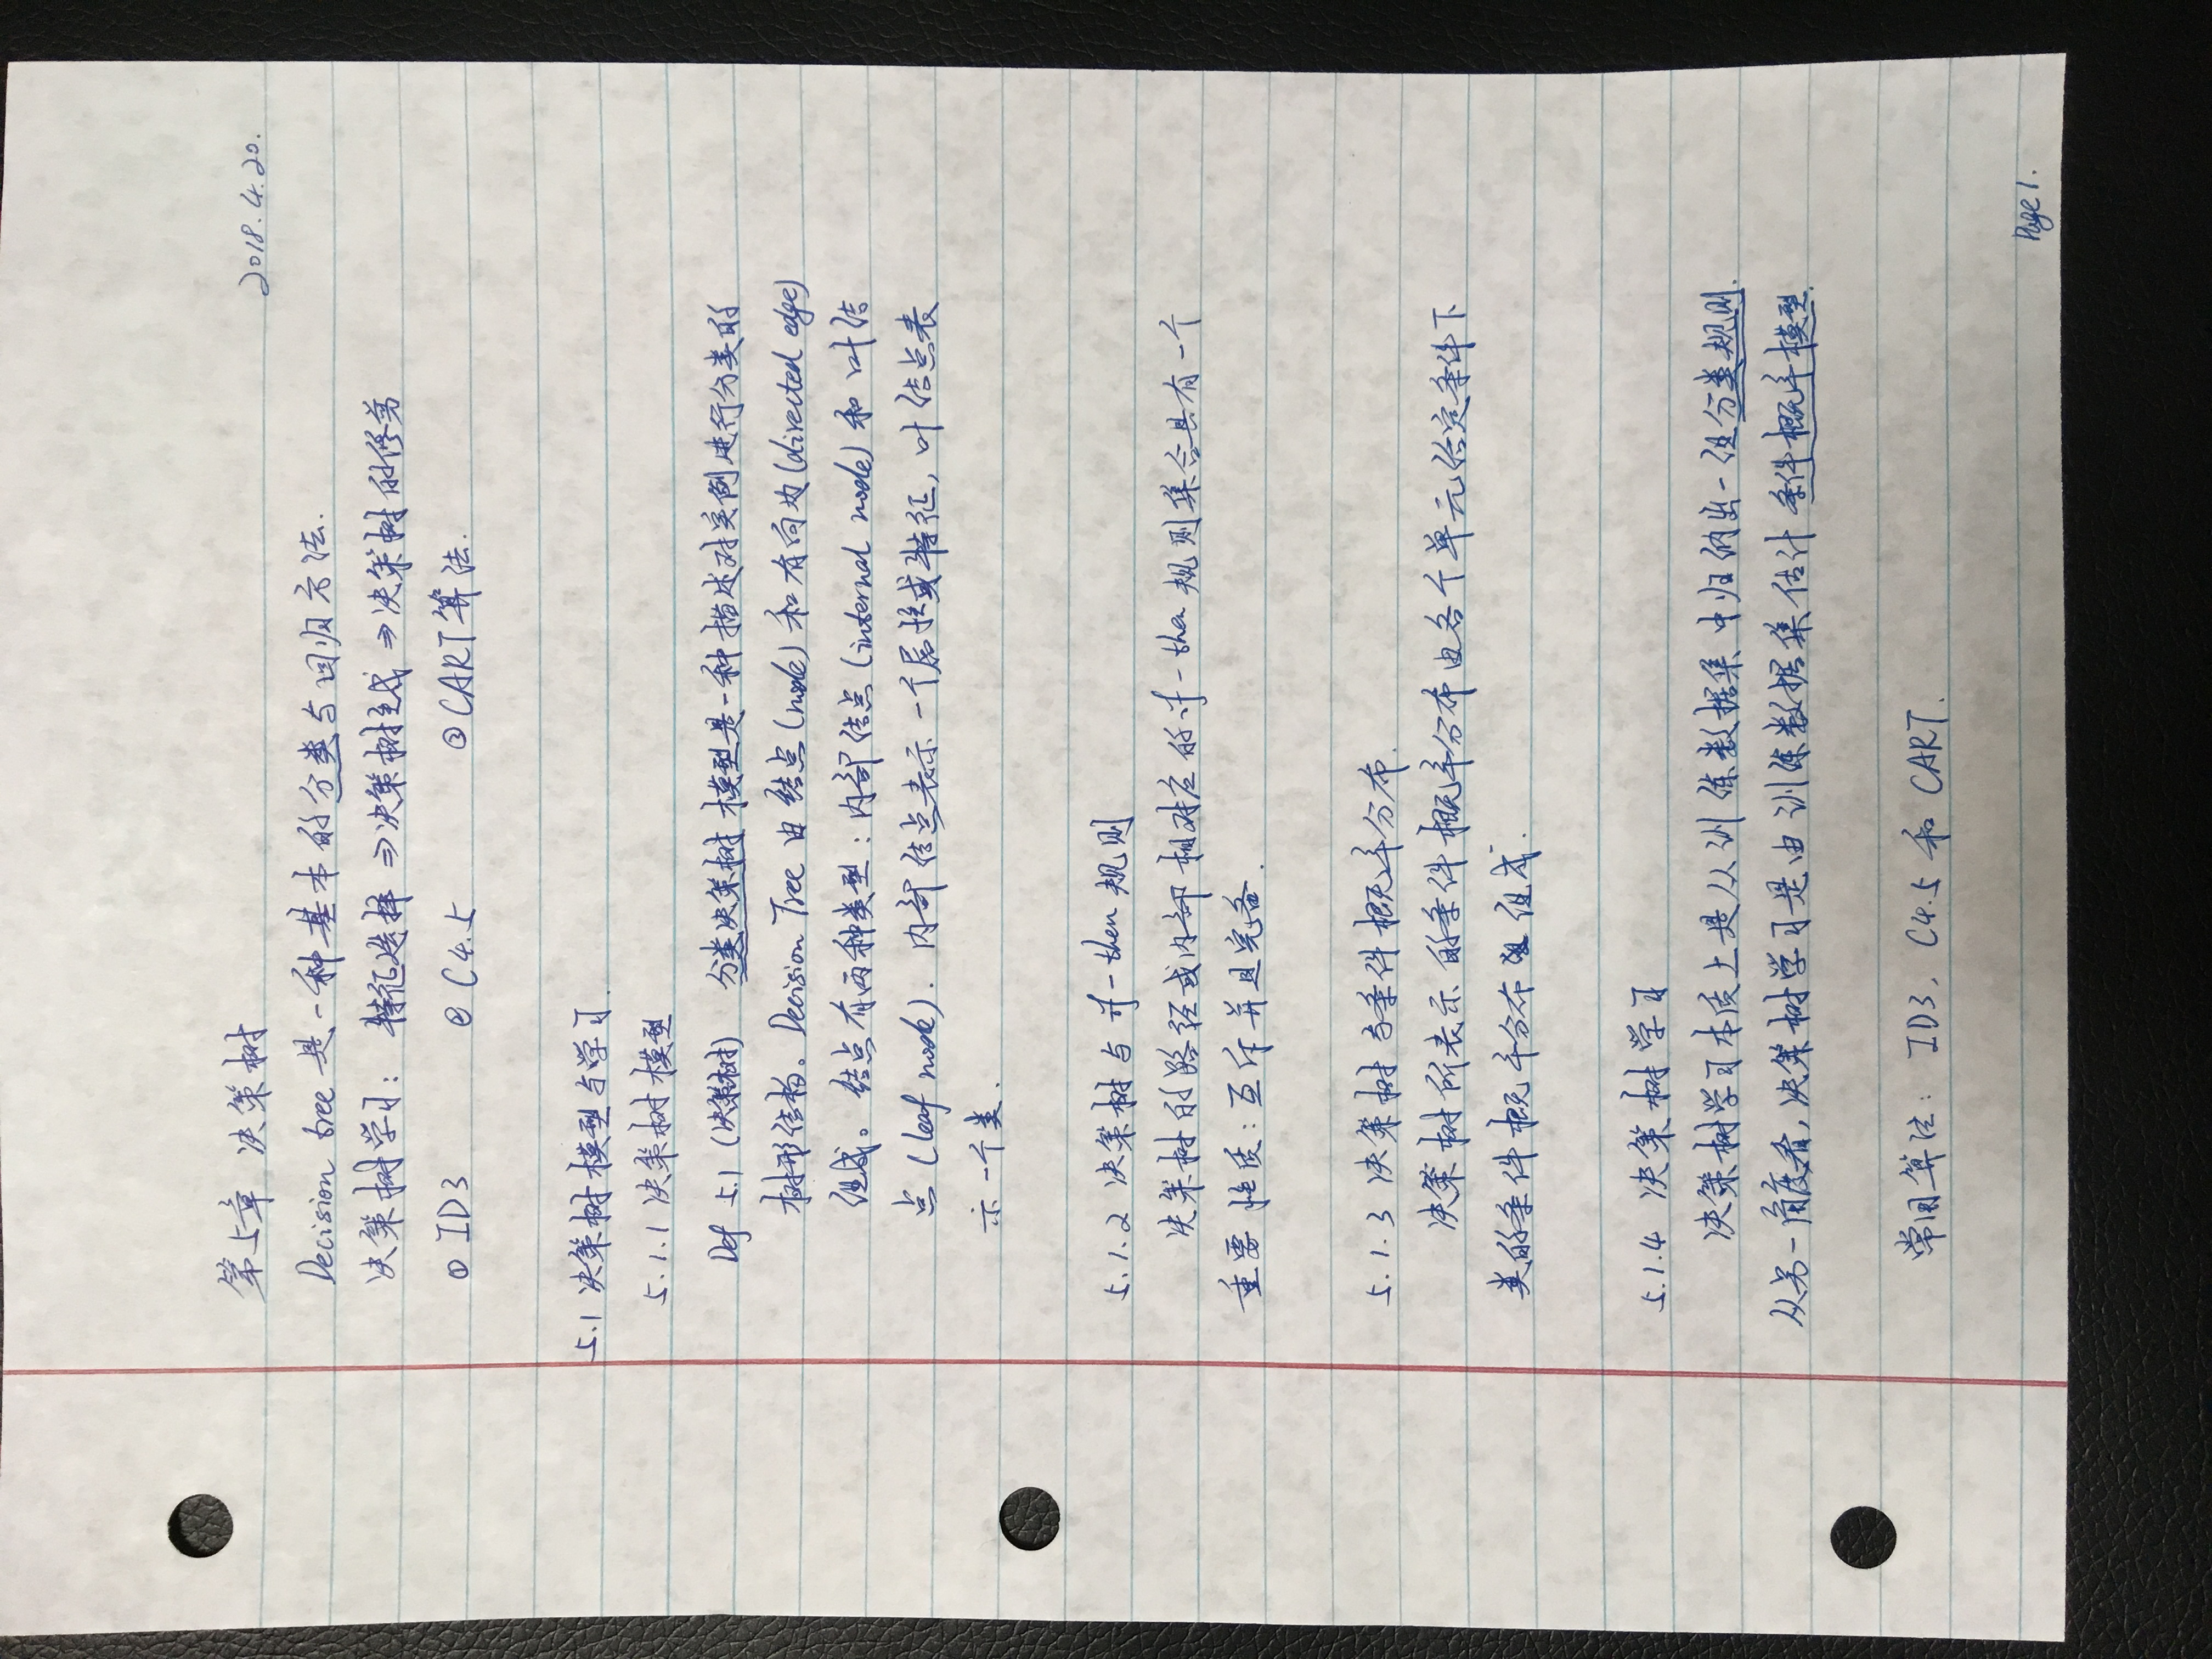 第5章 决策树
2018.4.20.
Decision tree 是一种基本的分类与回归方法.
决策树学习: 特征选择 ⇒决策树生成 ⇒决策树的修剪
① ID3 ② C4.5 ③ CART算法.
5.1 决策树模型与学习.
5.1.1 决策树模型
Def 5.1 (决策树) 分类决策树模型是一种描述对实例进行分类的
树形结构。Decision Tree 由结点(node)和有向边(directed edge)
组成。结点有两种类型:内部结点(internal node)和叶结
点(leaf node). 内部结点表示一个属性或特征, 叶结点表
示一个类.
5.1.2 决策树与if-then规则
决策树的路径或内部相对应的if-then规则集合具有一个
重要性质:互斥并且完备.
5.1.3 决策树与条件概率分布.
决策树所表示的条件概率分布由各个单元给定条件下
类的条件概率分布组成.
5.1.4 决策树学习
决策树学习本质上是从训练数据集中归纳出一组分类规则.
从另一角度看,决策树学习是由训练数据集估计条件概率模型.
常用算法: ID3, C4.5 和 CART.
Page 1.